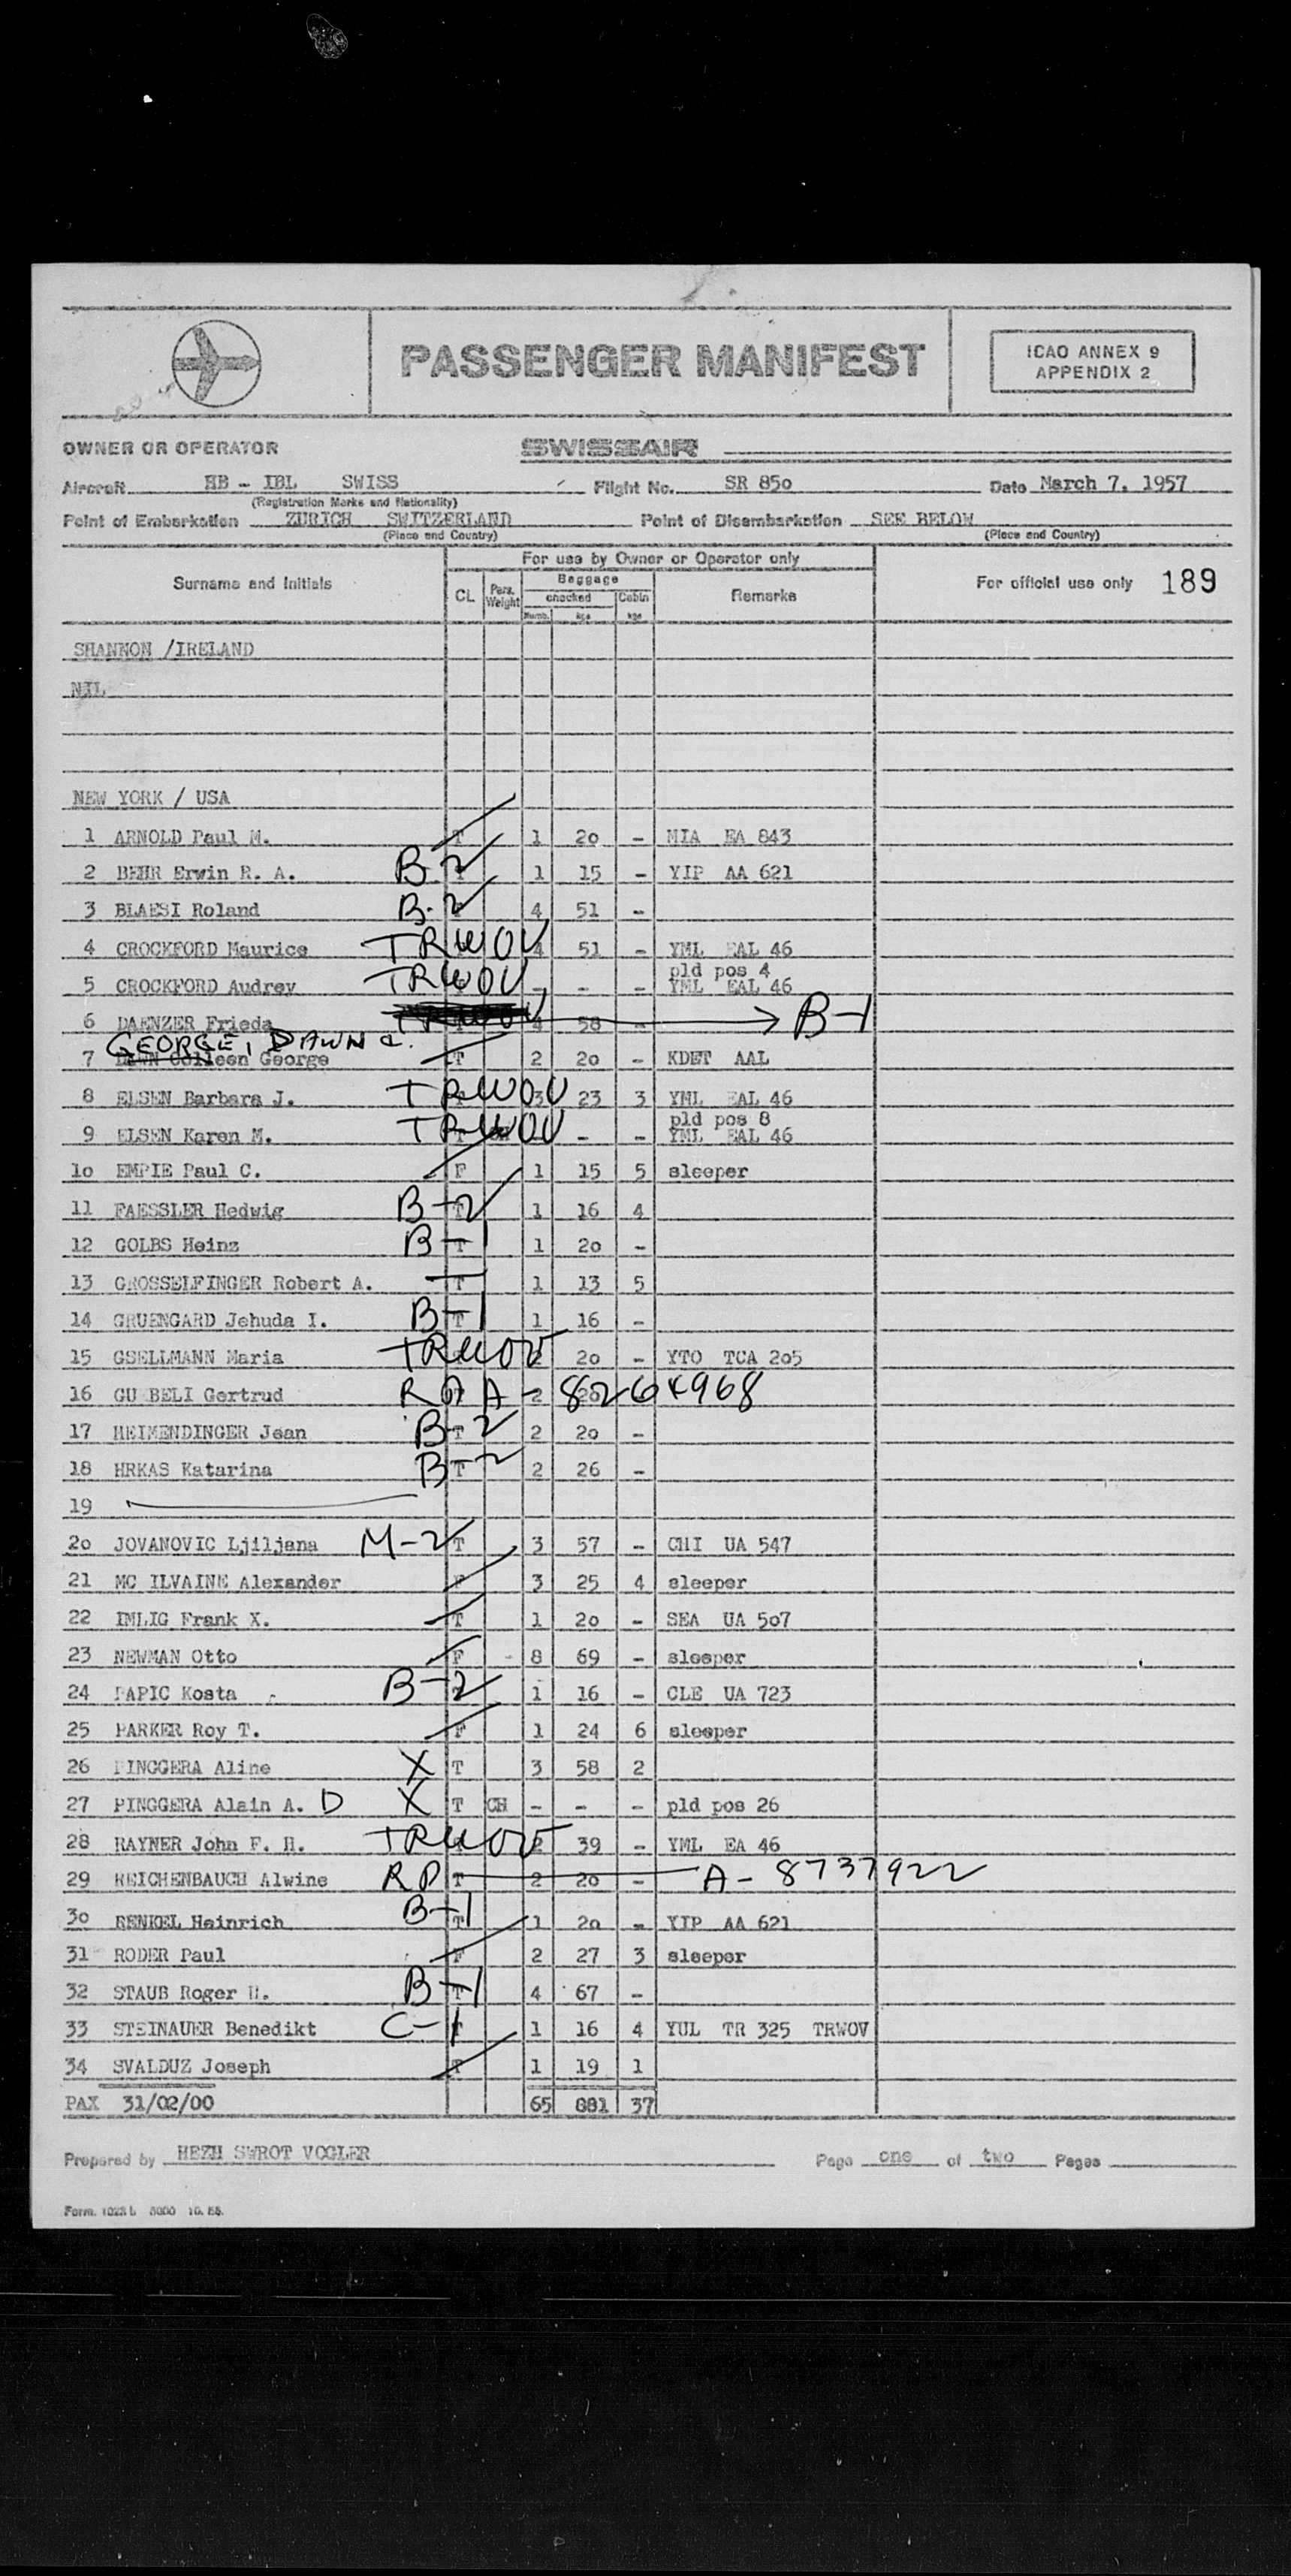 PASSENGER MANIFEST
ICAO ANNEX 9
APPENDIX 2
OWNER OR OPERATOR SWISSAIR
Aircraft HB - IBL SWISS Flight No. SR 85o Date March 7, 1957
(Registration Marks and Nationality)
Point of Embarkation ZURICH SWITZERLAND Point of Disembarkation SEE BELOW
(Place and Country) (Place and Country)
For use by Owner or Operator only
Surname and Initials CL Pers. Weight Baggage checked Numb. kgs Cabin kgs Remarks For official use only 189
SHANNON /IRELAND
NIL
NEW YORK / USA
1 ARNOLD Paul M. T 1 2o - MIA EA 843
2 BEHR Erwin R. A. B-2 T 1 15 - YIP AA 621
3 BLAESI Roland B-2 4 51 -
4 CROCKFORD Maurice TRWOV 4 51 - YML EAL 46
5 CROCKFORD Audrey TRWOV - - - pld pos 4 YML EAL 46
6 DAENZER Frieda 4 58 - B-1
GEORGE, DAWN C.
7 DAWN Colleen George T 2 2o - KDET AAL
8 ELSEN Barbara J. TRWOV 3 23 3 YML EAL 46
9 ELSEN Karen M. TRWOV - - pld pos 8 YML EAL 46
1o EMPIE Paul C. F 1 15 5 sleeper
11 FAESSLER Hedwig B-2 T 1 16 4
12 GOLBS Heinz B-1 T 1 2o -
13 GROSSELFINGER Robert A. T 1 13 5
14 GRUENGARD Jehuda I. B-1 T 1 16 -
15 GSELLMANN Maria TRWOV 2 2o - YTO TCA 2o5
16 GU BELI Gertrud RP A-8264968 2
17 HEIMENDINGER Jean B-2 T 2 2o -
18 HRKAS Katarina B-2 T 2 26 -
19
2o JOVANOVIC Ljiljana M-2 T 3 57 - CHI UA 547
21 MC ILVAINE Alexander F 3 25 4 sleeper
22 IMLIG Frank X. T 1 2o - SEA UA 5o7
23 NEWMAN Otto F 8 69 - sleeper
24 PAPIC Kosta B-2 T 1 16 - CLE UA 723
25 PARKER Roy T. F 1 24 6 sleeper
26 PINGGERA Aline X T 3 58 2
27 PINGGERA Alain A. D X T CH - - - pld pos 26
28 RAYNER John F. H. TRWOV 2 39 - YML EA 46
29 REICHENBAUCH Alwine RP T 2 2o - A-8737922
3o RENKEL Heinrich B-1 T 1 2o - YIP AA 621
31 RODER Paul F 2 27 3 sleeper
32 STAUB Roger H. B-1 T 4 67 -
33 STEINAUER Benedikt C-1 T 1 16 4 YUL TR 325 TRWOV
34 SVALDUZ Joseph T 1 19 1
PAX 31/02/00 65 881 37
Prepared by HEZH SWROT VOGLER Page one of two Pages
Form. 1023 b 5000 10. 55.